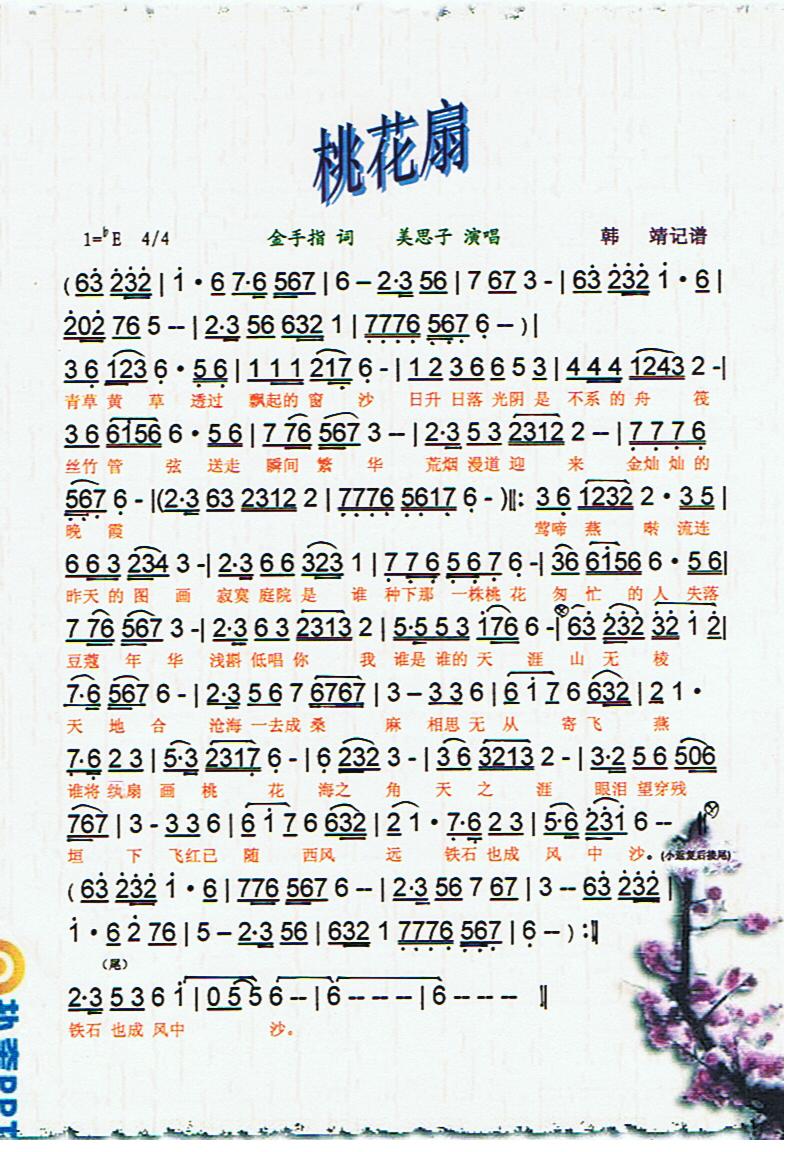 桃花扇
1=♭E 4/4 金手指 词 美思子 演唱 韩 靖记谱
(63 232 | 1·6 7·6 567 | 6 – 2·3 56 | 7 67 3 - | 63 232 1·6 |
202 76 5 -- | 2·3 56 632 1 | 7776 567 6 -- )|
3 6 123 6·5 6 | 1 1 1 217 6 - | 1 2 3 6 6 5 3 | 4 4 4 1243 2 -|
青草 黄 草 透过 飘起的 窗 沙 日升 日落 光阴 是 不系 的 舟 筏
3 6 6156 6·5 6 | 7 76 567 3 -- | 2·3 5 3 2312 2 -- | 7 7 7 6
丝竹 管 弦 送走 瞬间 繁 华 荒烟 漫道 迎 来 金灿 灿 的
567 6 - |(2·3 63 2312 2 | 7776 5617 6 - )‖: 3 6 1232 2·3 5 |
晚 霞 莺啼 燕 啭 流连
6 6 3 234 3 -| 2·3 6 6 323 1 | 7 7 6 5 6 7 6 - | 36 6156 6·56|
昨天 的 图 画 寂寞 庭院 是 谁 种下那 一株桃 花 匆 忙 的 人 失落
7 76 567 3 -| 2·3 6 3 2313 2 | 5·5 5 3 176 6 -| 63 232 32 1 2|
豆蔻 年 华 浅斟 低唱 你 我 谁是 谁的 天 涯 山 无 棱
7·6 567 6 - | 2·3 5 6 7 6767 | 3 – 3 3 6 | 6 1 7 6 632 | 2 1·
天 地 合 沧海 一去成 桑 麻 相思 无 从 寄 飞 燕
7·6 2 3 | 5·3 2317 6 -| 6 232 3 - | 36 3213 2 – | 3·2 5 6 506
谁将 纨扇 画 桃 花 海之 角 天 之 涯 眼泪 望穿 残
767 | 3 - 3 3 6 | 6 1 7 6 632 | 2 1· 7·6 2 3 | 5·6 231 6 --
垣 下 飞红已 随 西风 远 铁石 也成 风 中 沙。(小返复后接尾)
(63 232 1·6 | 776 567 6 – | 2·3 56 7 67 | 3 -- 63 232 |
1·6 2 76 | 5 – 2·3 56 | 632 1 7776 567 | 6 -- ) :‖
(尾)
2·3 5 3 6 1 | 0 5 5 6 -- | 6 - - - - | 6 -- -- ‖
铁石 也成 风中 沙。